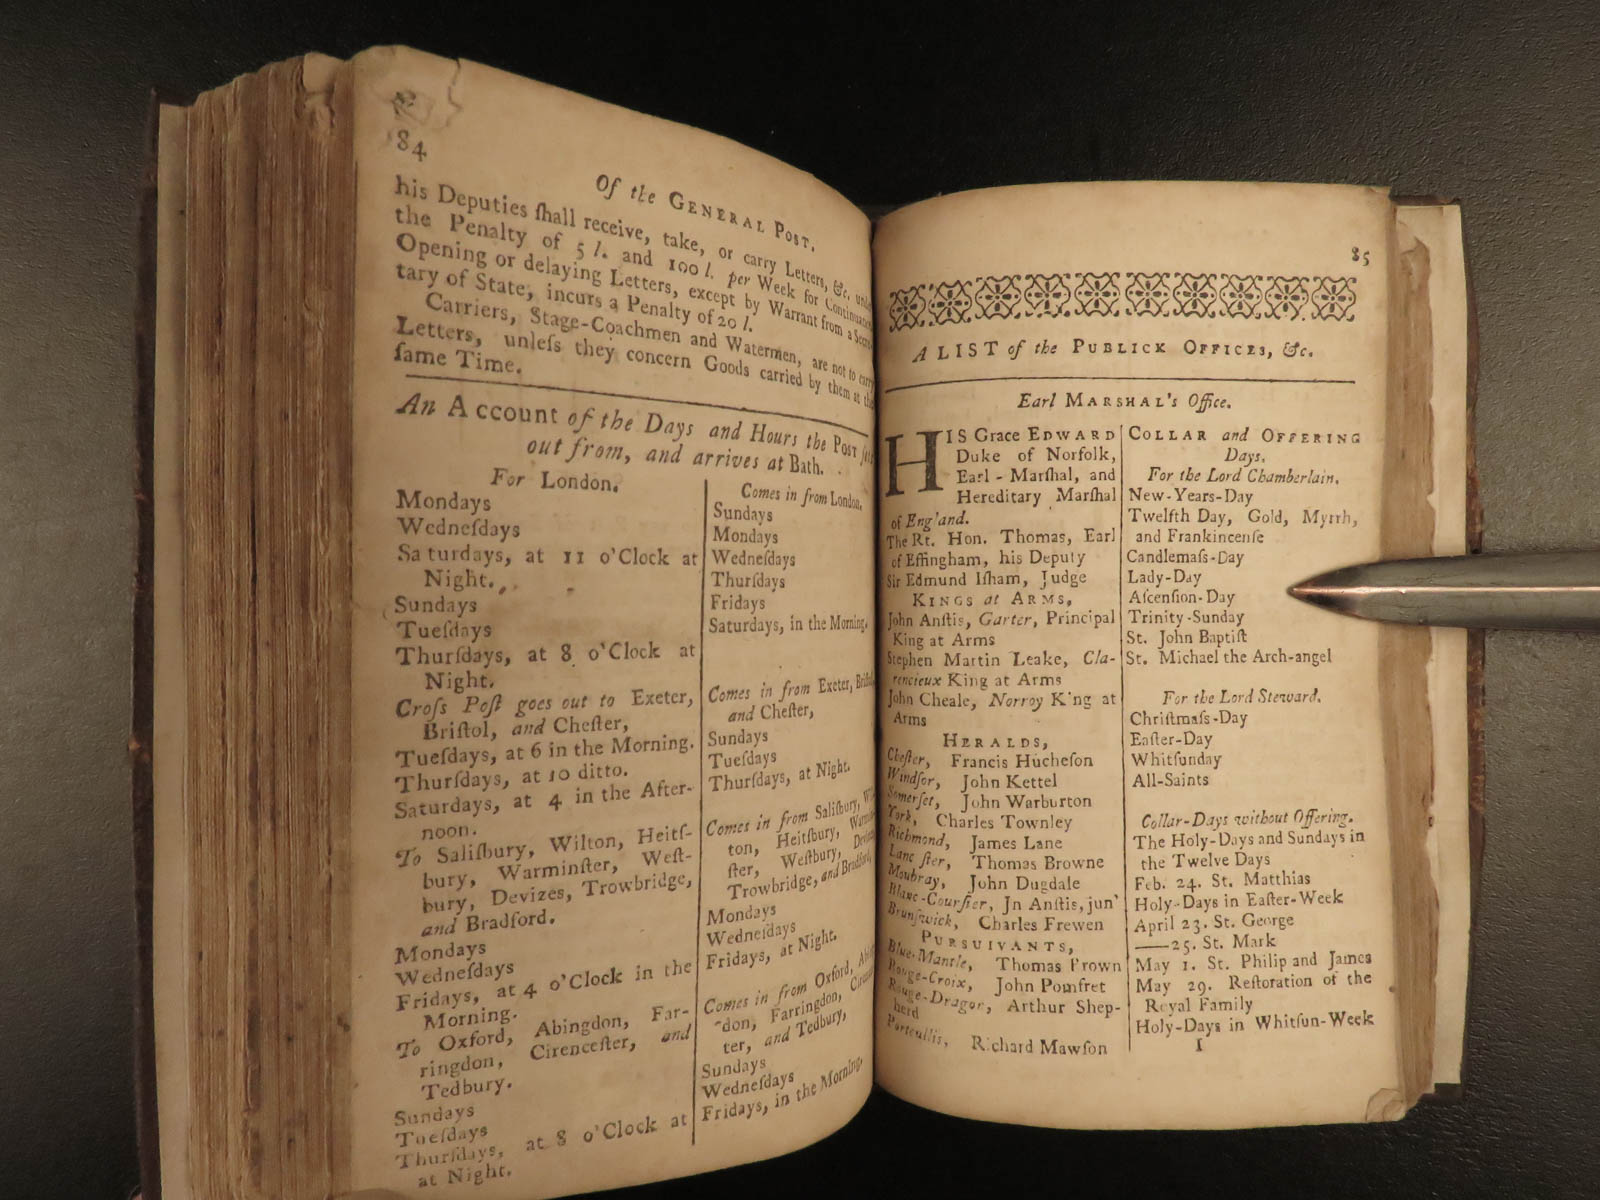 84
Of the GENERAL POST.
his Deputies ſhall receive, take, or carry Letters, &c. under
the Penalty of 5 l. and 100 l. per Week for Continuance.
Opening or delaying Letters, except by Warrant from a Secre-
tary of State, incurs a Penalty of 20 l.
Carriers, Stage-Coachmen and Watermen, are not to carry
Letters, unleſs they concern Goods carried by them at the
ſame Time.
An Account of the Days and Hours the POST ſets
out from, and arrives at Bath.
For London.
Mondays
Wedneſdays
Saturdays, at 11 o'Clock at
Night.
Sundays
Tueſdays
Thurſdays, at 8 o'Clock at
Night.
Croſs Poſt goes out to Exeter,
Briſtol, and Cheſter,
Tueſdays, at 6 in the Morning.
Thurſdays, at 10 ditto.
Saturdays, at 4 in the After-
noon.
To Saliſbury, Wilton, Heitſ-
bury, Warminſter, Weſt-
bury, Devizes, Trowbridge,
and Bradford.
Mondays
Wedneſdays
Fridays, at 4 o'Clock in the
Morning.
To Oxford, Abingdon, Far-
ringdon, Cirenceſter, and
Tedbury.
Sundays
Tueſdays
Thurſdays, at 8 o'Clock at
at Night.
Comes in from London.
Sundays
Mondays
Wedneſdays
Thurſdays
Fridays
Saturdays, in the Morning.
Comes in from Exeter, Briſtol,
and Cheſter,
Sundays
Tueſdays
Thurſdays, at Night.
Comes in from Saliſbury, Wil-
ton, Heitſbury, Warmin-
ſter, Weſtbury, Devizes,
Trowbridge, and Bradford,
Mondays
Wedneſdays
Fridays, at Night.
Comes in from Oxford, Abing-
don, Farringdon, Cirenceſ-
ter, and Tedbury,
Sundays
Wedneſdays
Fridays, in the Morning.
85
A LIST of the PUBLICK OFFICES, &c.
Earl MARSHAL's Office.
HIS Grace EDWARD
Duke of Norfolk,
Earl-Marſhal, and
Hereditary Marſhal
of England.
The Rt. Hon. Thomas, Earl
of Effingham, his Deputy
Sir Edmund Iſham, Judge
KINGS at ARMS,
John Anſtis, Garter, Principal
King at Arms
Stephen Martin Leake, Cla-
rencieux King at Arms
John Cheale, Norroy King at
Arms
HERALDS,
Cheſter, Francis Hucheſon
Windſor, John Kettel
Somerſet, John Warburton
York, Charles Townley
Richmond, James Lane
Lancſter, Thomas Browne
Moubray, John Dugdale
Blanc-Courſier, Jn Anſtis, jun'
Brunſwick, Charles Frewen
PURSUIVANTS,
Blue-Mantle, Thomas Brown
Rouge-Croix, John Pomfret
Rouge-Dragon, Arthur Shep-
herd
Portcullis, Richard Mawſon
COLLAR and OFFERING
Days.
For the Lord Chamberlain.
New-Years-Day
Twelfth Day, Gold, Myrrh,
and Frankincenſe
Candlemaſs-Day
Lady-Day
Aſcenſion-Day
Trinity-Sunday
St. John Baptiſt
St. Michael the Arch-angel
For the Lord Steward.
Chriſtmaſs-Day
Eaſter-Day
Whitſunday
All-Saints
Collar-Days without Offering.
The Holy-Days and Sundays in
the Twelve Days
Feb. 24. St. Matthias
Holy-Days in Eaſter-Week
April 23. St. George
——25. St. Mark
May 1. St. Philip and James
May 29. Reſtoration of the
Royal Family
Holy-Days in Whitſun-Week
I